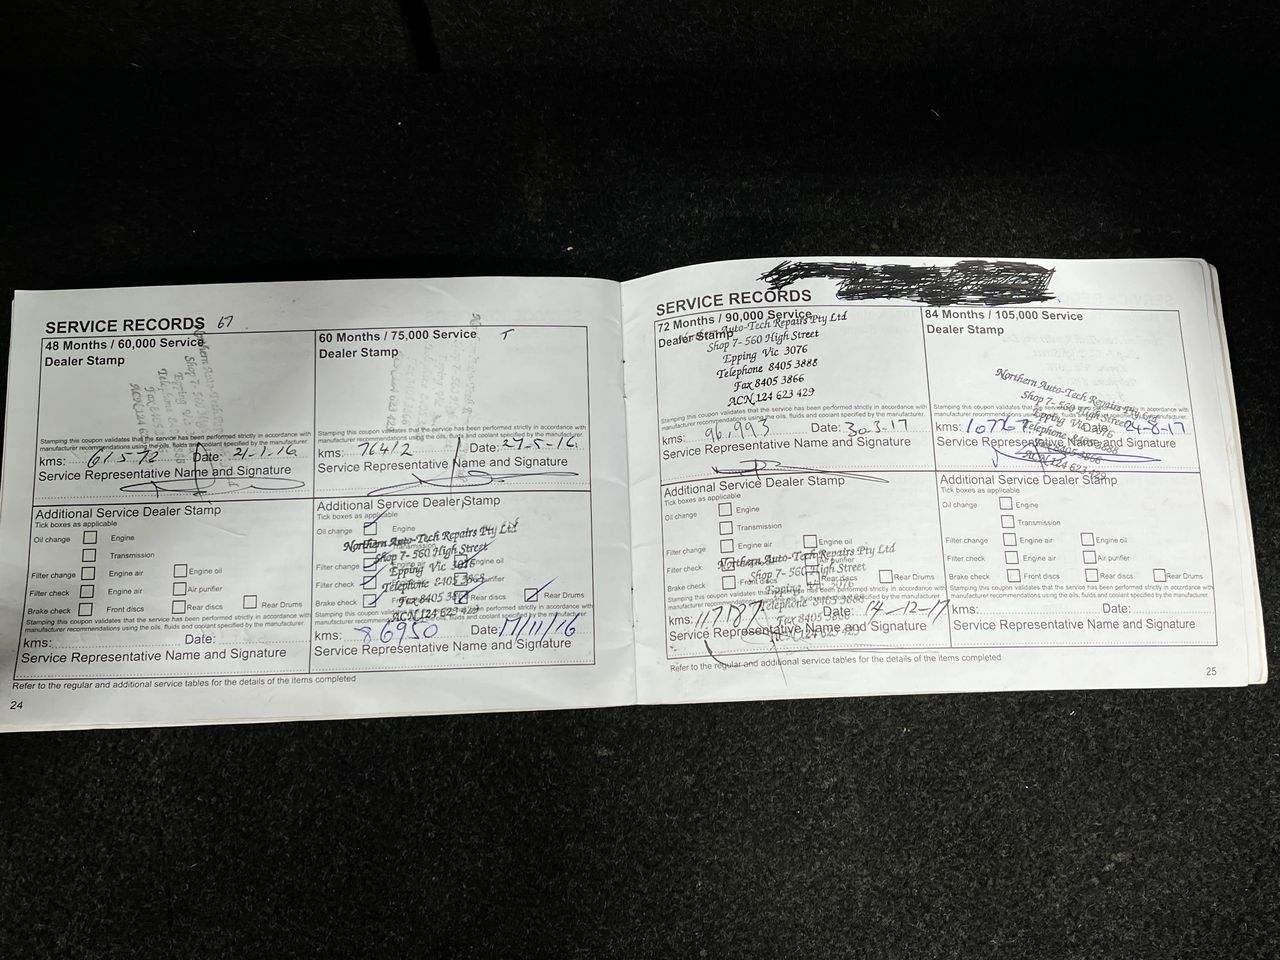 SERVICE RECORDS 67
48 Months / 60,000 Service
Dealer Stamp
Stamping this coupon validates that the service has been performed strictly in accordance with
manufacturer recommendations using the oils, fluids and coolant specified by the manufacturer.
kms: 61572 Date: 21-1-16
Service Representative Name and Signature
Additional Service Dealer Stamp
Tick boxes as applicable
Oil change Engine
Transmission
Filter change Engine air Engine oil
Filter check Engine air Air purifier
Brake check Front discs Rear discs Rear Drums
Stamping this coupon validates that the service has been performed strictly in accordance with
manufacturer recommendations using the oils, fluids and coolant specified by the manufacturer.
kms: Date:
Service Representative Name and Signature
60 Months / 75,000 Service T
Dealer Stamp
Stamping this coupon validates that the service has been performed strictly in accordance with
manufacturer recommendations using the oils, fluids and coolant specified by the manufacturer.
kms: 76412 Date: 27-5-16
Service Representative Name and Signature
Additional Service Dealer Stamp
Tick boxes as applicable
Oil change Engine
Northern Auto-Tech Repairs Pty Ltd
Shop 7- 560 High Street
Epping Vic 3076
Telephone 8405 3888
Fax 8405 3866
ACN 124 623 429
Filter change Engine oil
Filter check purifier
Brake check Rear discs Rear Drums
Stamping this coupon validates that the service has been performed strictly in accordance with
manufacturer recommendations using the oils, fluids and coolant specified by the manufacturer.
kms: 86950 Date: 17/11/16
Service Representative Name and Signature
Refer to the regular and additional service tables for the details of the items completed
24
SERVICE RECORDS
72 Months / 90,000 Service
Dealer Stamp
Northern Auto-Tech Repairs Pty Ltd
Shop 7- 560 High Street
Epping Vic 3076
Telephone 8405 3888
Fax 8405 3866
ACN 124 623 429
Stamping this coupon validates that the service has been performed strictly in accordance with
manufacturer recommendations using the oils, fluids and coolant specified by the manufacturer.
kms: 96,993 Date: 30.3-17
Service Representative Name and Signature
Additional Service Dealer Stamp
Tick boxes as applicable
Oil change Engine
Transmission
Filter change Engine air Engine oil
Northern Auto-Tech Repairs Pty Ltd
Shop 7- 560 High Street
Epping Vic 3076
Telephone 8405 3888
Fax 8405 3866
ACN 124 623 429
Filter check
Brake check Front discs Rear discs Rear Drums
Stamping this coupon validates that the service has been performed strictly in accordance with
manufacturer recommendations using the oils, fluids and coolant specified by the manufacturer.
kms: 117187 Date: 14-12-17
Service Representative Name and Signature
84 Months / 105,000 Service
Dealer Stamp
Northern Auto-Tech Repairs Pty
Shop 7- 560 High Street
Epping Vic 3076
Telephone 8405 3888
Fax 8405 3866
ACN 124 623 429
Stamping this coupon validates that the service has been performed strictly in accordance with
manufacturer recommendations using the oils, fluids and coolant specified by the manufacturer.
kms: Date: 24-8-17
Service Representative Name and Signature
Additional Service Dealer Stamp
Tick boxes as applicable
Oil change Engine
Transmission
Filter change Engine air Engine oil
Filter check Engine air Air purifier
Brake check Front discs Rear discs Rear Drums
Stamping this coupon validates that the service has been performed strictly in accordance with
manufacturer recommendations using the oils, fluids and coolant specified by the manufacturer.
kms: Date:
Service Representative Name and Signature
Refer to the regular and additional service tables for the details of the items completed
25